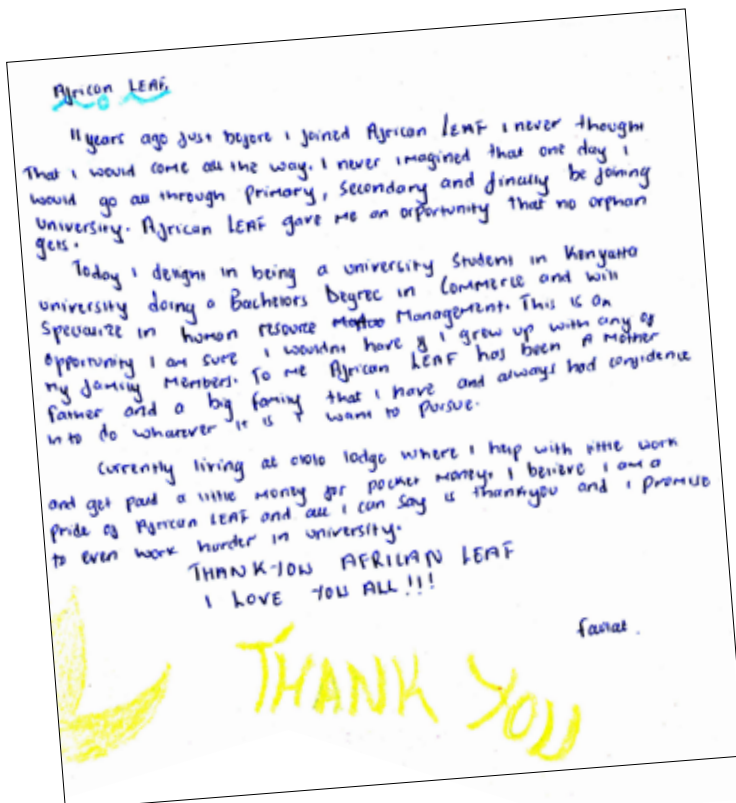 African LEAF
11 years ago just before i joined African LEAF i never thought
That i would come all the way. I never imagined that one day i
would go all through Primary, Secondary and finally be joining
University. African LEAF gave me an opportunity that no orphan
gets.
Today i delight in being a university Student in Kenyatta
university doing a Bachelors Degree in Commerce and will
Specialize in human resource Management. This is an
opportunity I am sure i wouldnt have if I grew up with any of
my family Members. To me African LEAF has been A Mother
father and a big family that i have and always had confidence
in to do whatever it is I want to pursue.
Currently living at ololo lodge where i help with little work
and get paid a little money for pocket money. I believe i am a
pride of African LEAF and all i can say is thankyou and i promise
to even work harder in university.
THANK-YOU AFRICAN LEAF
I LOVE YOU ALL!!!
THANK YOU